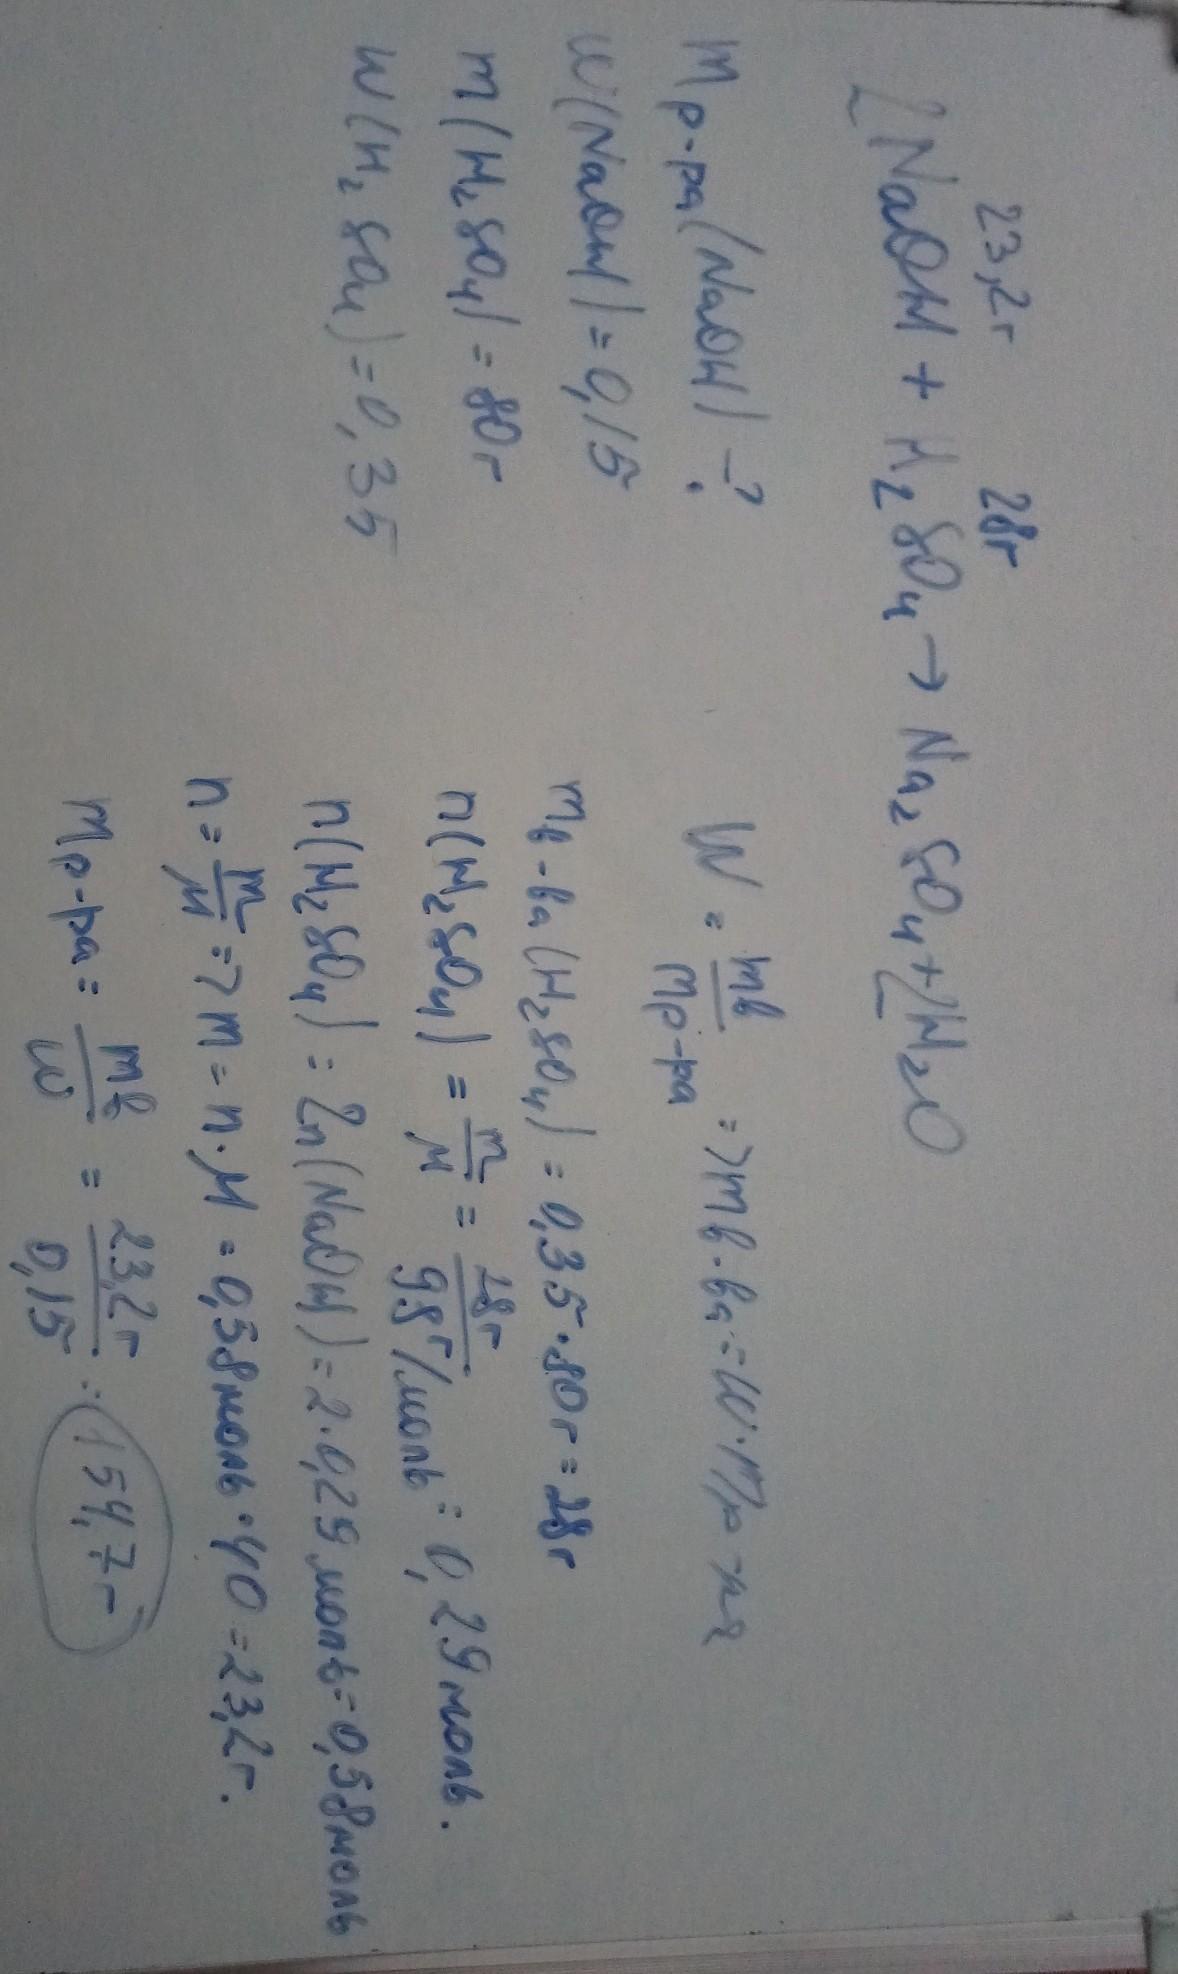 23,2г 28г
2NaOH + H₂SO₄ → Na₂SO₄ + 2H₂O
mр-ра(NaOH) -?
W(NaOH) = 0,15
m(H₂SO₄) = 80г
W(H₂SO₄) = 0,35
W = mв/mр-ра => mв-ва = W · mр-ра
mв-ва(H₂SO₄) = 0,35 · 80г = 28г
n(H₂SO₄) = m/M = 28г/98г/моль = 0,29 моль.
n(H₂SO₄) = 2n(NaOH) = 2 · 0,29 моль = 0,58 моль
n = m/M => m = n · M = 0,58 моль · 40 = 23,2г.
mр-ра = mв/W = 23,2г/0,15 = 154,7г